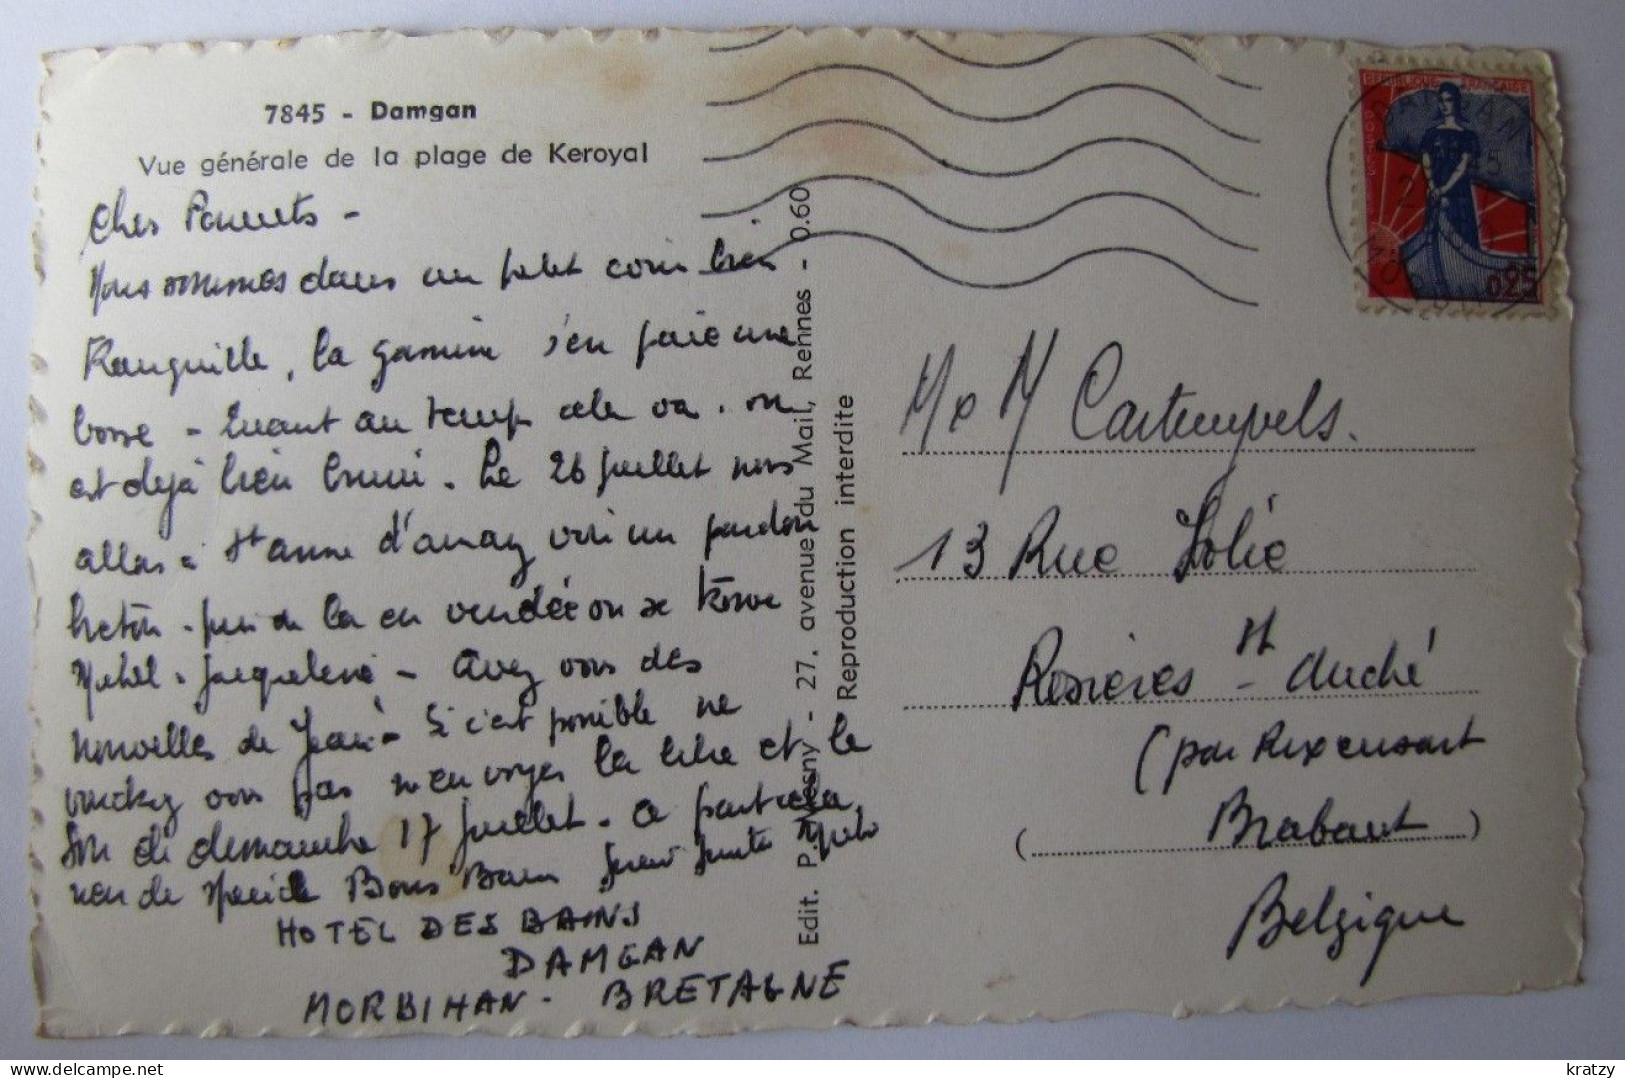 7845 - Damgan
Vue générale de la plage de Keroyal
Chers Parents -
Nous sommes dans un petit coin bien
tranquille, la gamine s'en paie une
bosse - Quant au temps cela va. on
est déjà bien bruni. Le 26 juillet nous
allons à St anne d'auray voir un pardon
breton - puis de la en vendée on se trouve
Jacqueline - avez vous des
nouvelles de Jean - Si c'est possible ne
voudriez vous pas m'envoyer la libre et le
Soir de dimanche 17 juillet. a part cela
rien de Bons
HOTEL DES BAINS
DAMGAN
MORBIHAN - BRETAGNE
Edit. P. Mesny - 27, avenue du Mail, Rennes - 0.60
Reproduction interdite
REPUBLIQUE FRANÇAISE
0,25
MORBIHAN
M & M Cartuyvels.
13 Rue Jolie
Rosières - St André
(par Rixensart
( Brabant )
Belgique
kratzy